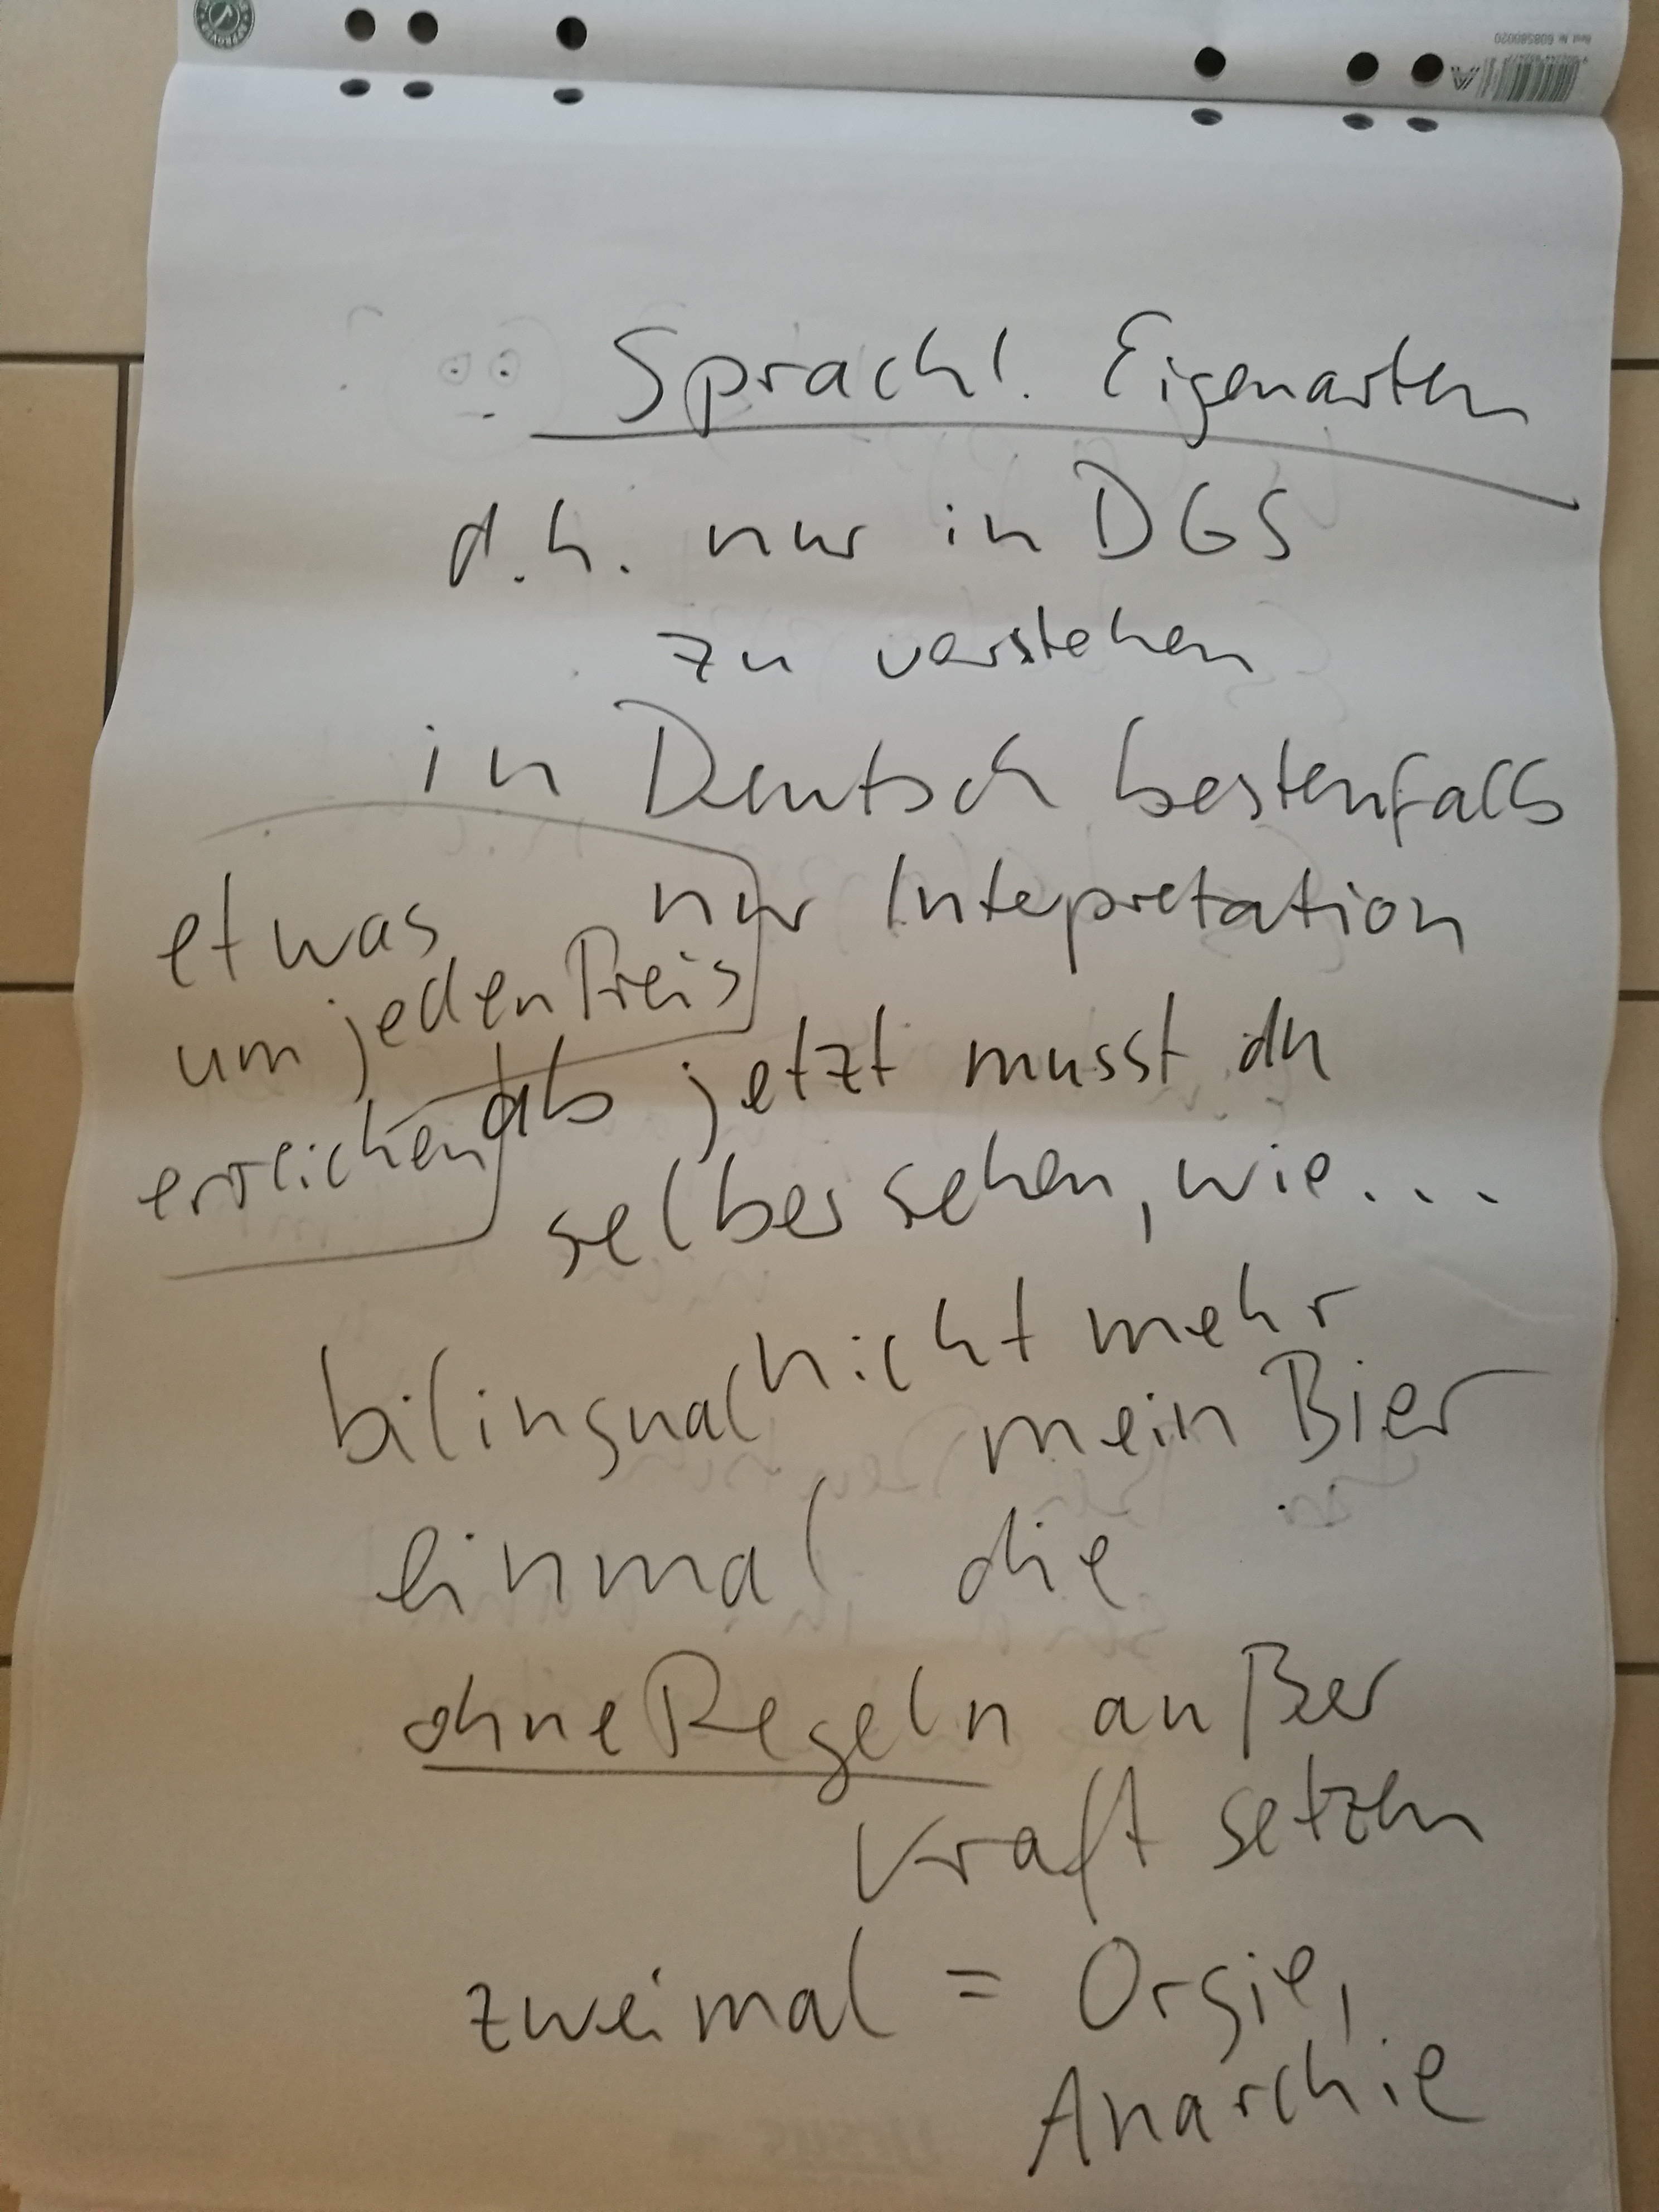 Sprachl. Eigenarten
d.h. nur in DGS
zu verstehen
in Deutsch bestenfalls
nur Intepretation
etwas
um jeden Preis
erreichen
ab jetzt musst du
selber sehen, wie...
nicht mehr
mein Bier
bilingual
einmal die
ohne Regeln außer
Kraft setzen
zweimal = Orgie,
Anarchie